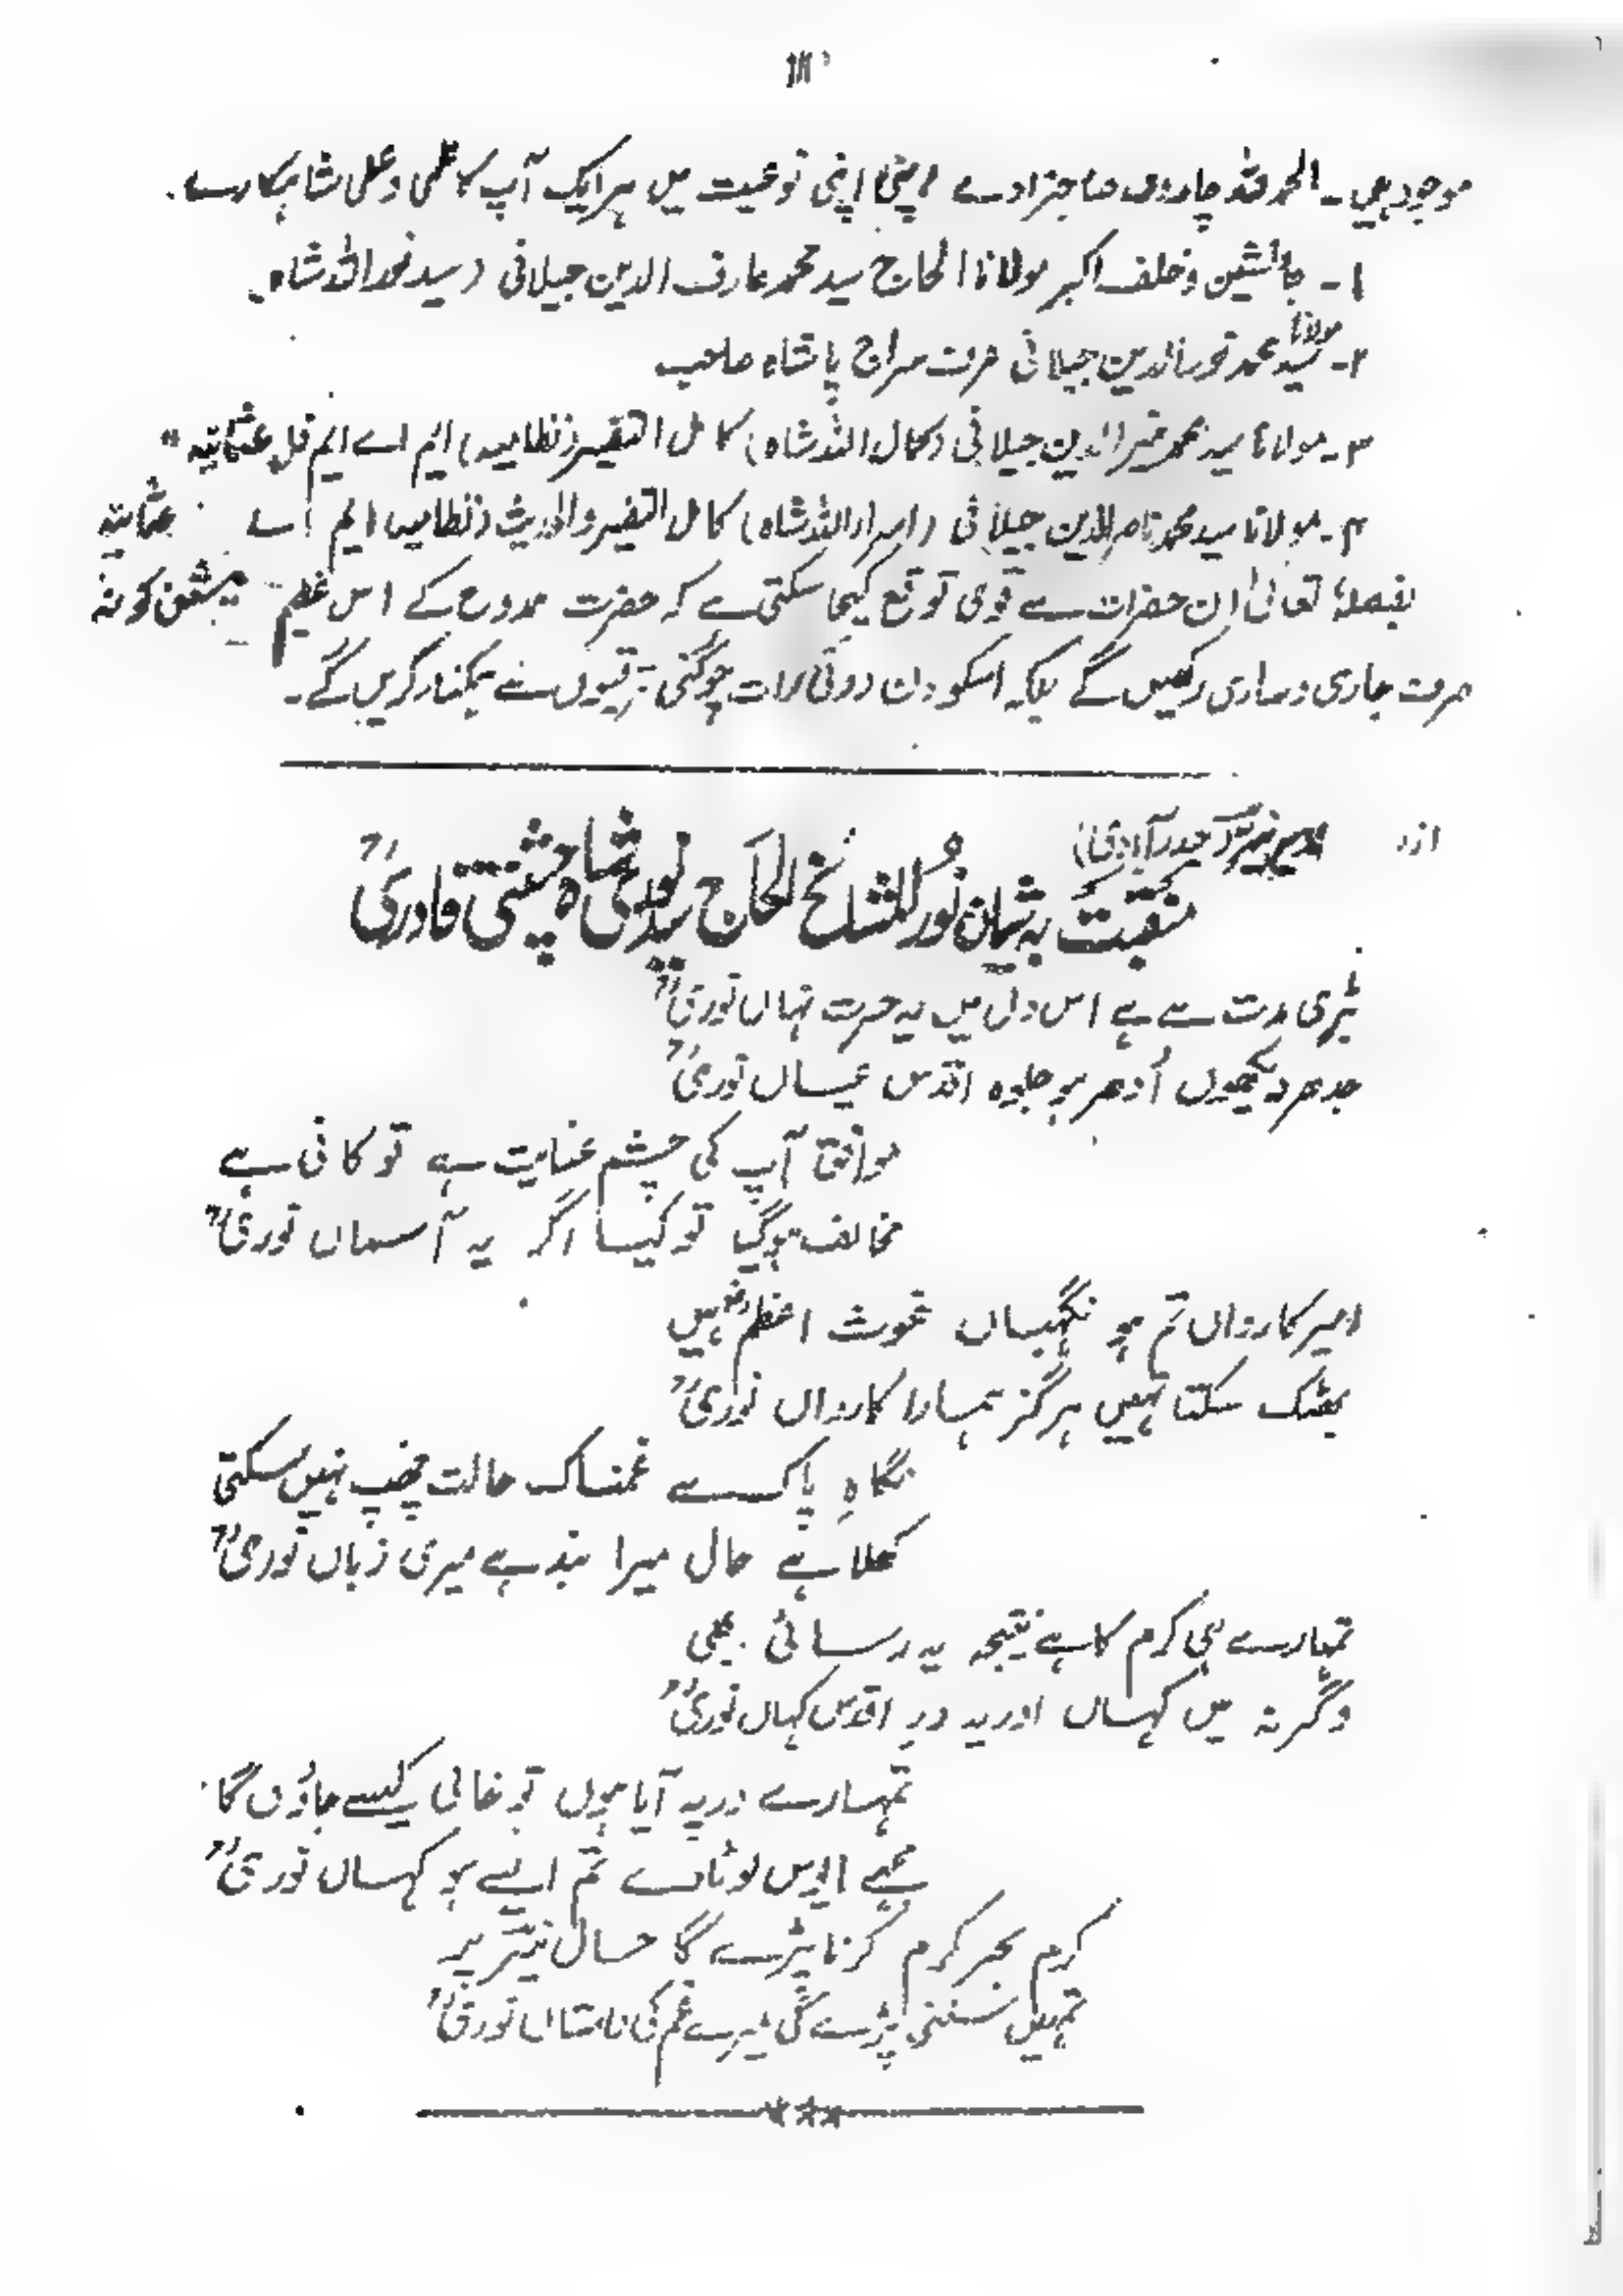 موجود ہیں۔ الحمد للہ چاروں صاحبزادے اپنی اپنی نوعیت میں ہر ایک آپ کا علمی و عملی شاہکار ہے۔
۱۔ جانشین و خلف اکبر مولانا الحاج سید محمد عارف الدین جیلانی (سید نور اللہ شاہ)
۲۔ مولانا سید محمد نور الدین جیلانی عرف سراج پاشاہ صاحب
۳۔ مولانا سید محمد منیر الدین جیلانی (کمال اللہ شاہ) کامل التفسیر (نظامیہ) ایم اے ایم فل عثمانیہ
۴۔ مولانا سید محمد ناصر الدین جیلانی (اسرار اللہ شاہ) کامل التفسیر والحدیث (نظامیہ) ایم اے عثمانیہ
بفضلہٖ تعالیٰ ان حضرات سے قوی توقع کیجا سکتی ہے کہ حضرت ممدوح کے اس عظیم مشن کو نہ
صرف جاری و ساری رکھیں گے بلکہ اسکو دن دونی رات چوگنی ترقیوں سے ہمکنار کریں گے۔
از: نیر حیدرآبادی
منقبت بہ شان نور المشائخ الحاج سید نوری شاہ چشتی قادریؒ
بڑی مدت سے ہے اس دل میں یہ حسرت نہاں نوریؒ
جدھر دیکھوں اُدھر ہو جلوہ اقدس عیاں نوریؒ
موافق آپ کی چشم عنایت ہے تو کافی ہے
مخالف ہوگیا تو کیا اگر یہ آسماں نوریؒ
امیر کارواں تم ہو نگہباں غوث اعظمؓ ہیں
بھٹک سکتا نہیں ہرگز ہمارا کارواں نوریؒ
نگاہِ پاک سے غمناک حالت چھپ نہیں سکتی
کھلا ہے حال میرا بند ہے میری زباں نوریؒ
تمہارے ہی کرم کا ہے نتیجہ یہ رسائی بھی
وگرنہ میں کہاں اور یہ درِ اقدس کہاں نوریؒ
تمہارے در پہ آیا ہوں تو خالی کیسے جاؤں گا
مجھے مایوس لوٹا دے تم ایسے ہو کہاں نوریؒ
کرم بحر کرم کرنا پڑے گا حال نیر پر
تمہیں سننی پڑے گی میرے غم کی داستاں نوریؒ